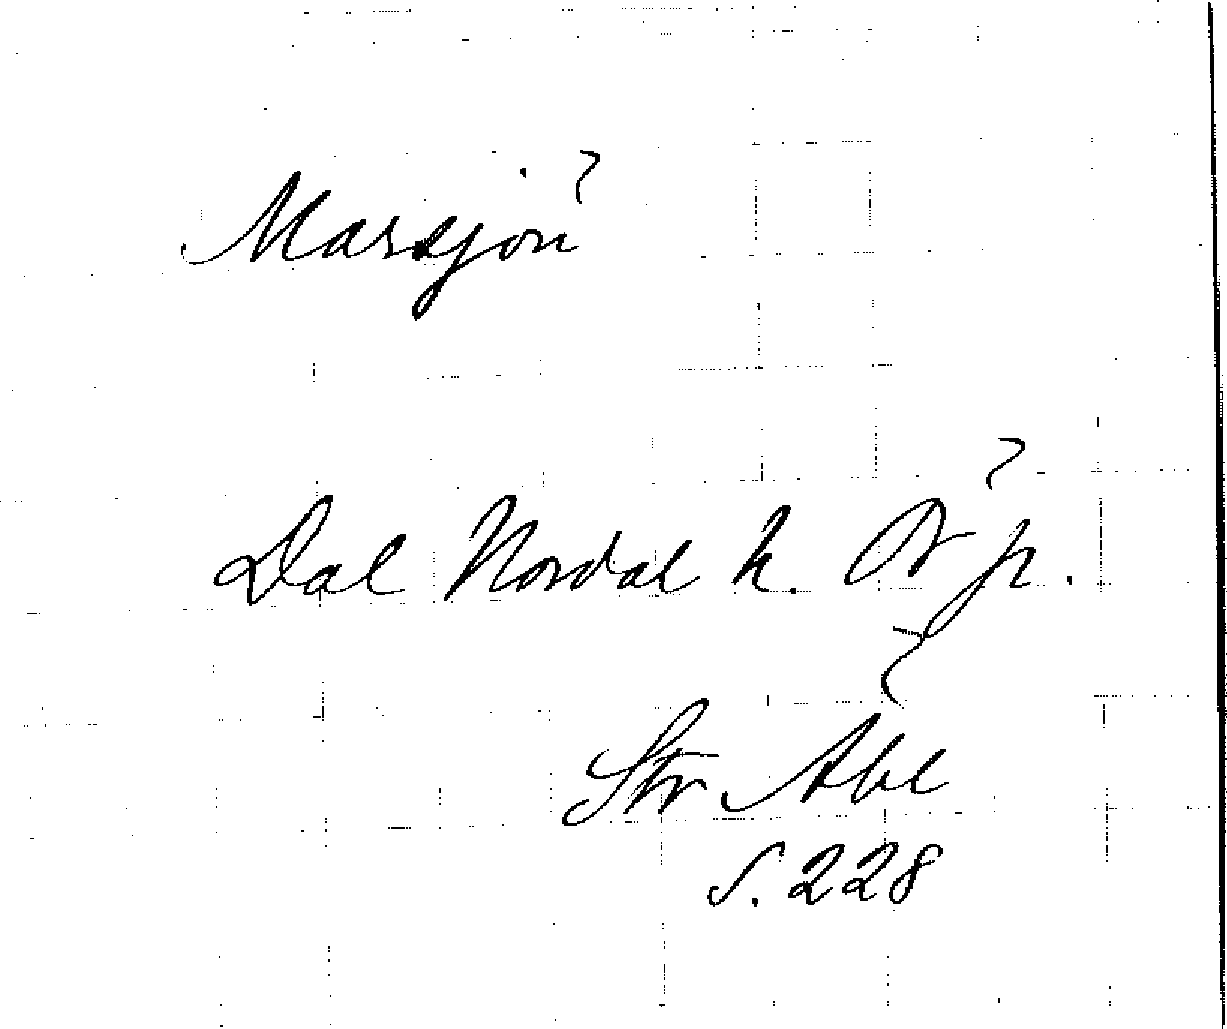 Marsjön
Dal Nordal h. Ör p.
Str Åbl
S. 228